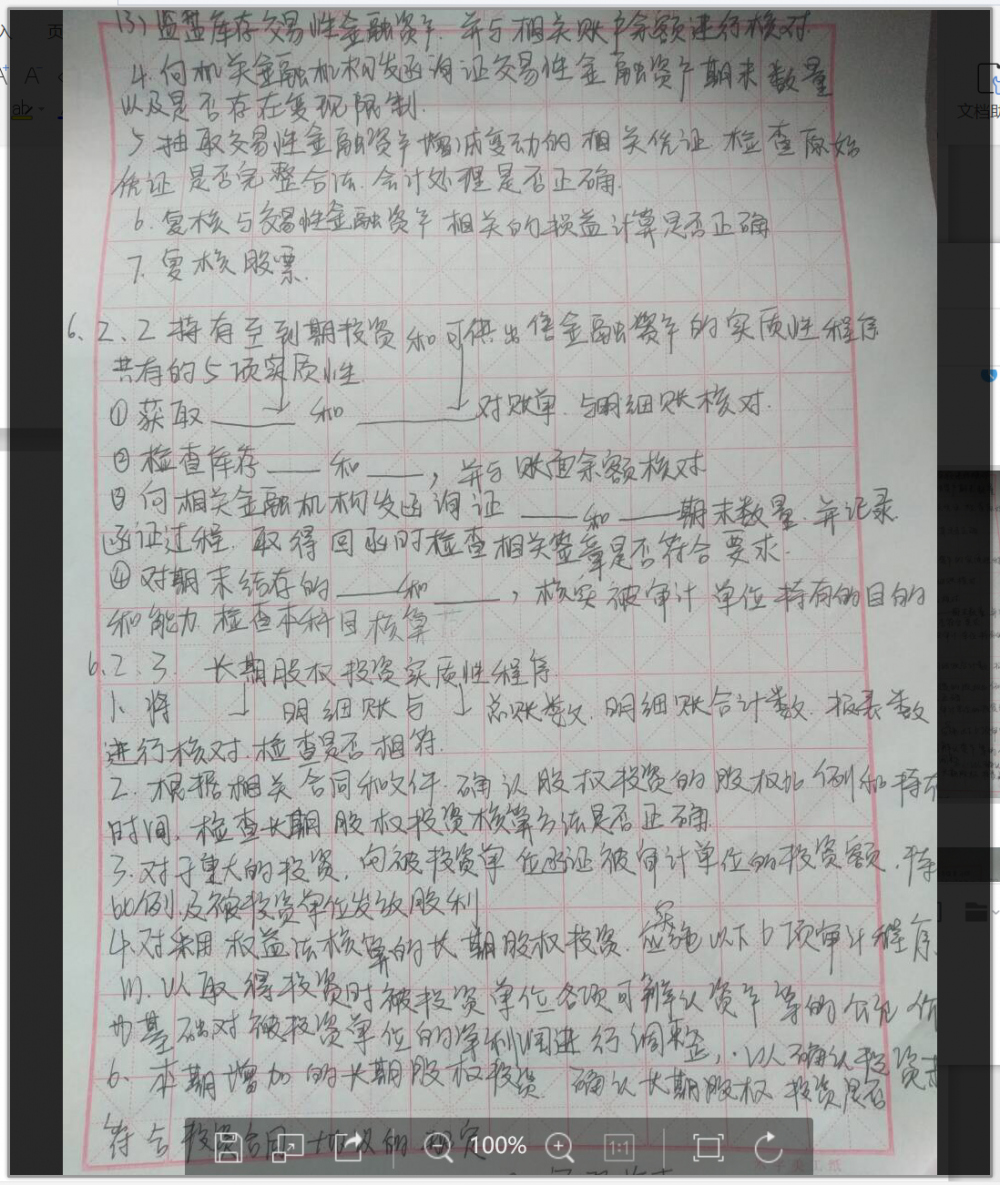 (3) 监盘库存交易性金融资产,并与相关账户余额进行核对.
4. 向相关金融机构发函询证交易性金融资产期末数量
以及是否存在变现限制.
5. 抽取交易性金融资产增减变动的相关凭证 检查原始
凭证是否完整合法.会计处理是否正确.
6. 复核与交易性金融资产相关的损益计算是否正确
7. 复核股票.
6、2、2 持有至到期投资和可供出售金融资产的实质性程序
共有的5项实质性
① 获取____和____对账单.与明细账核对.
② 检查库存____和____,并与账面余额核对
③ 向相关金融机构发函询证____和____期末数量.并记录
函证过程.取得回函时检查相关签章是否符合要求.
④ 对期末结存的____和____,核实被审计单位持有的目的
和能力 检查本科目核算
6、2、3. 长期股权投资实质性程序
1、将 明细账与 总账数.明细账合计数.报表数
进行核对.检查是否相符.
2. 根据相关合同和文件.确认股权投资的股权比例和持有
时间,检查长期股权投资核算方法是否正确
3. 对于重大的投资,向被投资单位函证被审计单位的投资额.持
比例及被投资单位发放股利
4. 对采用权益法核算的长期股权投资.应实施以下6项审计程序
(1). 以取得投资时被投资单位各项可辨认资产等的公允价
为基础对被投资单位的净利润进行调整,以确认投资
6、本期增加的长期股权投资.确认长期股权投资是否
符合投资合同 协议的规定
100%
1:1
文档助